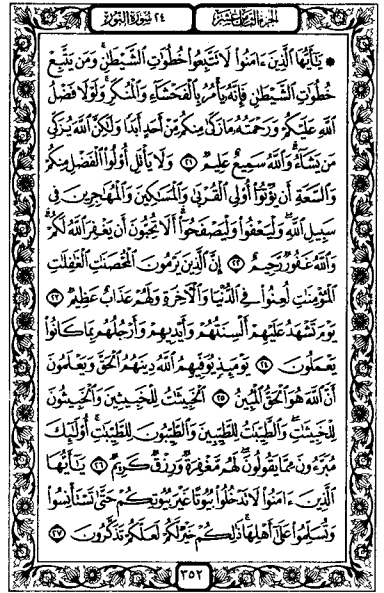 الجزء الثامن عشر
٢٤ سورة النور
۞ يَٰٓأَيُّهَا ٱلَّذِينَ ءَامَنُوا۟ لَا تَتَّبِعُوا۟ خُطُوَٰتِ ٱلشَّيْطَٰنِ ۚ وَمَن يَتَّبِعْ
خُطُوَٰتِ ٱلشَّيْطَٰنِ فَإِنَّهُۥ يَأْمُرُ بِٱلْفَحْشَآءِ وَٱلْمُنكَرِ ۚ وَلَوْلَا فَضْلُ
ٱللَّهِ عَلَيْكُمْ وَرَحْمَتُهُۥ مَا زَكَىٰ مِنكُم مِّنْ أَحَدٍ أَبَدًا وَلَٰكِنَّ ٱللَّهَ يُزَكِّى
مَن يَشَآءُ ۗ وَٱللَّهُ سَمِيعٌ عَلِيمٌ ٢١ وَلَا يَأْتَلِ أُو۟لُوا۟ ٱلْفَضْلِ مِنكُمْ
وَٱلسَّعَةِ أَن يُؤْتُوٓا۟ أُو۟لِى ٱلْقُرْبَىٰ وَٱلْمَسَٰكِينَ وَٱلْمُهَٰجِرِينَ فِى
سَبِيلِ ٱللَّهِ ۖ وَلْيَعْفُوا۟ وَلْيَصْفَحُوٓا۟ ۗ أَلَا تُحِبُّونَ أَن يَغْفِرَ ٱللَّهُ لَكُمْ ۗ
وَٱللَّهُ غَفُورٌ رَّحِيمٌ ٢٢ إِنَّ ٱلَّذِينَ يَرْمُونَ ٱلْمُحْصَنَٰتِ ٱلْغَٰفِلَٰتِ
ٱلْمُؤْمِنَٰتِ لُعِنُوا۟ فِى ٱلدُّنْيَا وَٱلْءَاخِرَةِ وَلَهُمْ عَذَابٌ عَظِيمٌ ٢٣
يَوْمَ تَشْهَدُ عَلَيْهِمْ أَلْسِنَتُهُمْ وَأَيْدِيهِمْ وَأَرْجُلُهُم بِمَا كَانُوا۟
يَعْمَلُونَ ٢٤ يَوْمَئِذٍ يُوَفِّيهِمُ ٱللَّهُ دِينَهُمُ ٱلْحَقَّ وَيَعْلَمُونَ
أَنَّ ٱللَّهَ هُوَ ٱلْحَقُّ ٱلْمُبِينُ ٢٥ ٱلْخَبِيثَٰتُ لِلْخَبِيثِينَ وَٱلْخَبِيثُونَ
لِلْخَبِيثَٰتِ ۖ وَٱلطَّيِّبَٰتُ لِلطَّيِّبِينَ وَٱلطَّيِّبُونَ لِلطَّيِّبَٰتِ ۚ أُو۟لَٰٓئِكَ
مُبَرَّءُونَ مِمَّا يَقُولُونَ ۖ لَهُم مَّغْفِرَةٌ وَرِزْقٌ كَرِيمٌ ٢٦ يَٰٓأَيُّهَا
ٱلَّذِينَ ءَامَنُوا۟ لَا تَدْخُلُوا۟ بُيُوتًا غَيْرَ بُيُوتِكُمْ حَتَّىٰ تَسْتَأْنِسُوا۟
وَتُسَلِّمُوا۟ عَلَىٰٓ أَهْلِهَا ۚ ذَٰلِكُمْ خَيْرٌ لَّكُمْ لَعَلَّكُمْ تَذَكَّرُونَ ٢٧
٣٥٢